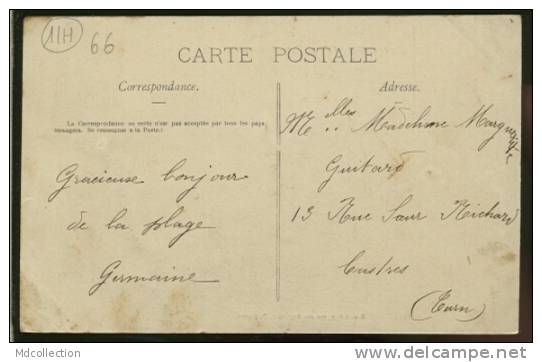 11H 66
CARTE POSTALE
Correspondance.
Adresse.
La Correspondance au verso n'est pas acceptée par tous les pays
étrangers. Se renseigner à la Poste.)
Gracieuse bonjour
de la plage
Germaine
Melles Madeleine Marguerite
Guitard
13 Rue Sœur Richard
Castres
(Tarn)
Mdcollection
http://www.delcampe.net